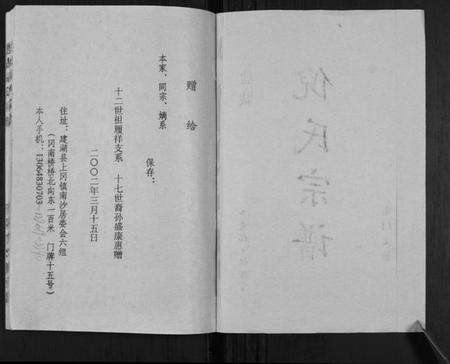 赠给
本家、同宗、嫡系
保存：
十二世祖履祥支系 十七世裔孙盛康惠赠
二〇〇二年三月十五日
住址：建湖县上冈镇南沙居委会六组
（冈南桥桥北向东一百米 门牌十五号）
本人手机：13064830703
倪氏宗谱